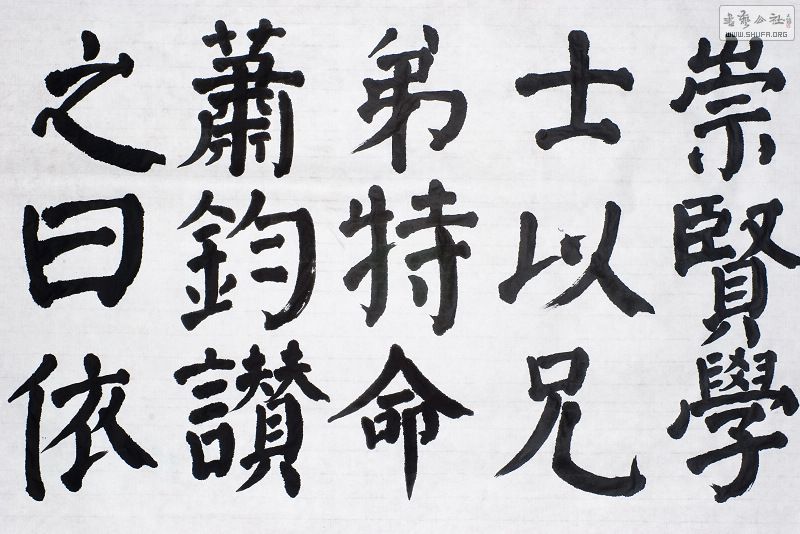 崇賢學
士以兄
弟特命
蕭鈞讃
之曰依
書藝公社
WWW.SHUFA.ORG